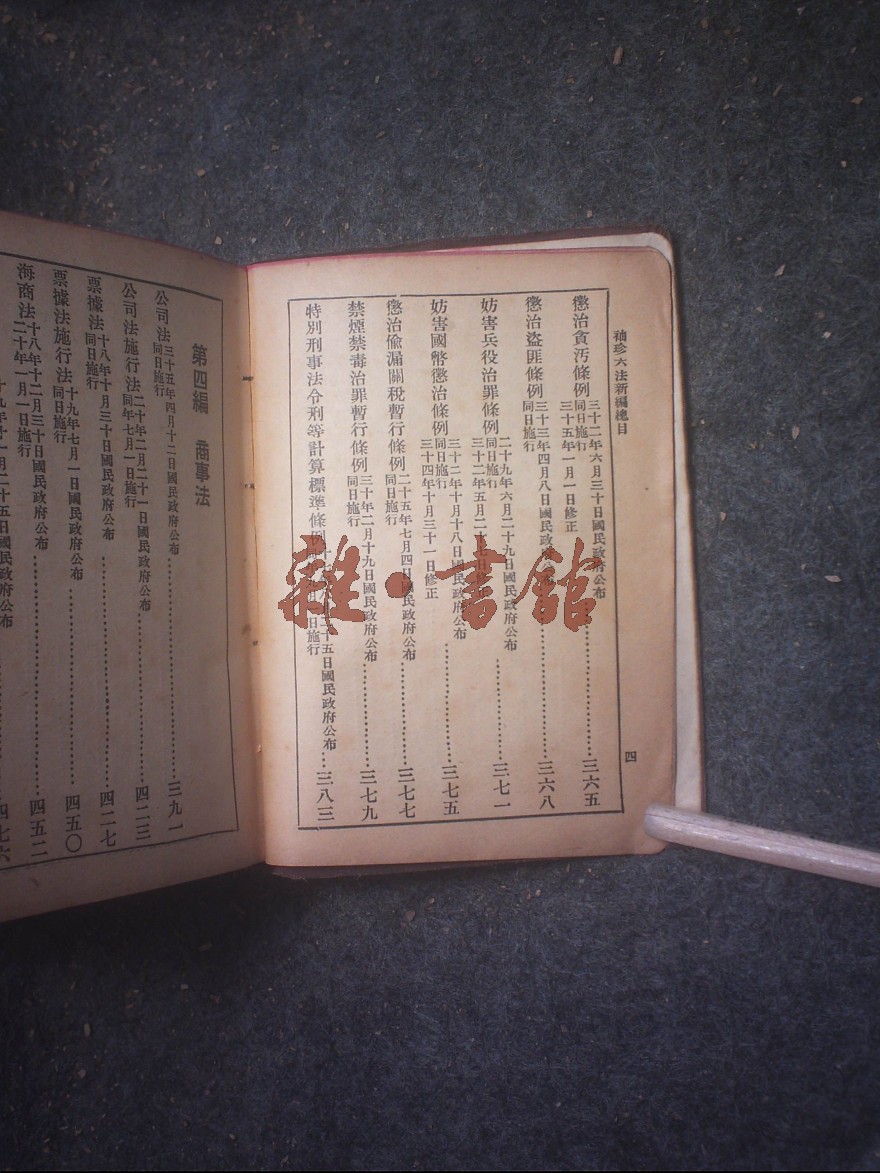 袖珍六法新編總目
四
懲治貪汚條例 三十二年六月三十日國民政府公布 同日施行 三十五年一月一日修正 三六五
懲治盜匪條例 三十三年四月八日國民政府公布 同日施行 三六八
妨害兵役治罪條例 二十九年六月二十九日國民政府公布 同日施行 三十二年五月二十七日 三七一
妨害國幣懲治條例 三十二年十月十八日國民政府公布 同日施行 三十四年十月三十一日修正 三七五
懲治偷漏關稅暫行條例 二十五年七月四日國民政府公布 同日施行 三七七
禁煙禁毒治罪暫行條例 三十年二月十九日國民政府公布 同日施行 三七九
特別刑事法令刑等計算標準條例 十五日國民政府公布 日施行 三八三
雜·書館
第四編 商事法
公司法 三十五年四月十二日國民政府公布 同日施行 三九一
公司法施行法 二十年二月二十一日國民政府公布 同年七月一日施行 四二三
票據法 十八年十月三十日國民政府公布 同日施行 四二七
票據法施行法 十九年七月一日國民政府公布 同日施行 四五〇
海商法 十八年十二月三十日國民政府公布 二十年一月一日施行 四五二
十九年十一月二十五日國民政府公布 四七六